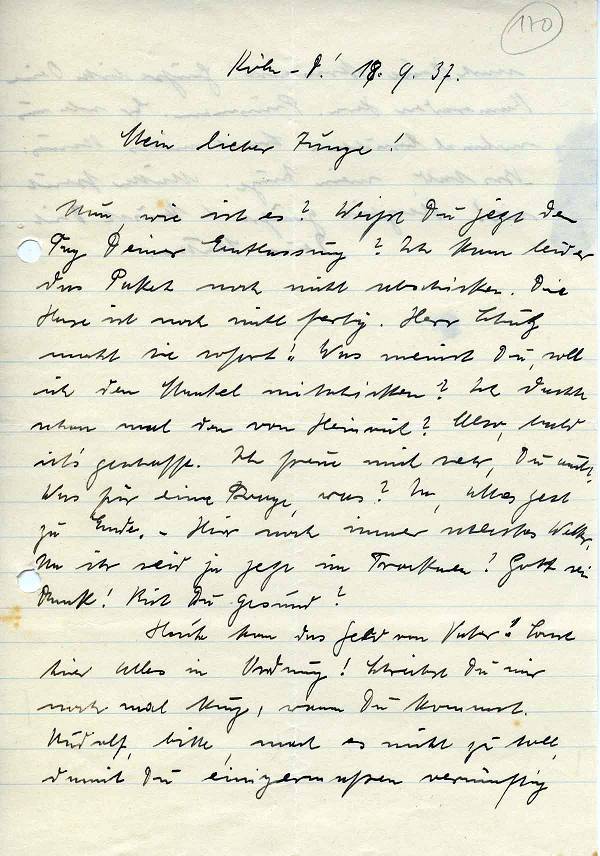 170
Köln-D! 18. 9. 37.
Mein lieber Junge!
Nun, wie ist es? Weißt Du jetzt den
Tag Deiner Entlassung? Ich kann leider
das Paket noch nicht abschicken. Die
Hose ist noch nicht fertig. Herr Schütz
macht sie sofort! Was meinst Du, soll
ich den Mantel mitschicken? Ich dachte
schon mal den von Heinrich? Also, bald
ist's geschafft. Ich freue mich sehr, Du auch?
Was für eine Frage, was? Ja, alles geht
zu Ende. - Hier noch immer Wetter,
Na ihr seid ja jetzt im Trocknen! Gott sei
Dank! Bist Du gesund?
Heute kam das Geld von Vater! Sonst
hier alles in Ordnung! Schreibst Du mir
noch mal kurz, wann Du kommst.
Rudolf, bitte, mach es nicht zu toll,
damit Du einigermaßen vernünftig